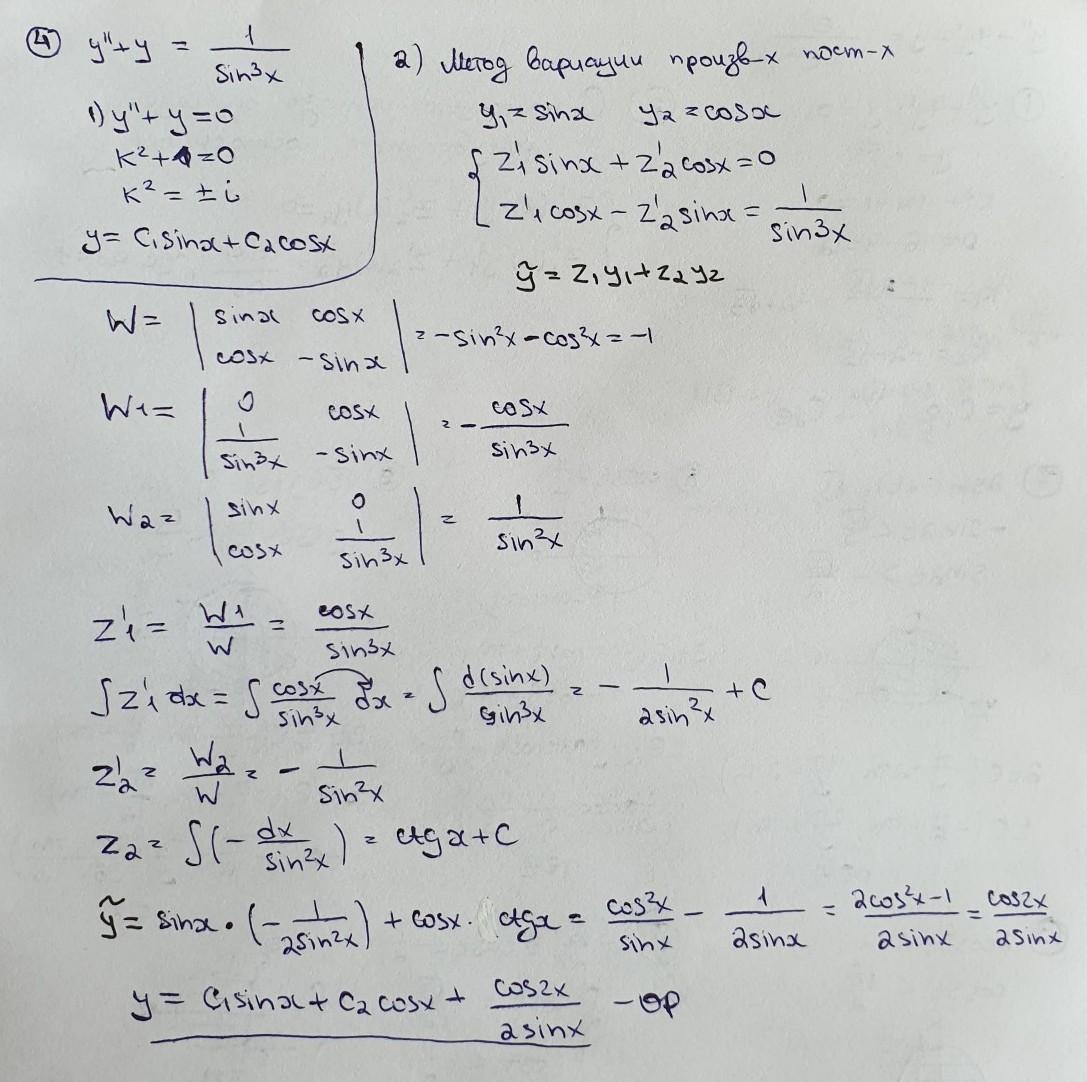 ④ y'' + y = 1/sin³x
1) y'' + y = 0
k² + 1 = 0
k² = ± i
y = C₁sinx + C₂cosx
2) Метод вариации произв-х пост-х
y₁ = sinx y₂ = cosx
{ z'₁ sinx + z'₂ cosx = 0
z'₁ cosx − z'₂ sinx = 1/sin³x
ỹ = z₁y₁ + z₂y₂
W = | sinx cosx ; cosx −sinx | = −sin²x − cos²x = −1
W1 = | 0 cosx ; 1/sin³x −sinx | = − cosx/sin³x
W2 = | sinx 0 ; cosx 1/sin³x | = 1/sin²x
z'₁ = W1/W = cosx/sin³x
∫ z'₁ dx = ∫ cosx/sin³x dx = ∫ d(sinx)/sin³x = − 1/2sin²x + C
z'₂ = W2/W = − 1/sin²x
z₂ = ∫(− dx/sin²x) = ctgx + C
ỹ = sinx · (− 1/2sin²x) + cosx · ctgx = cos²x/sinx − 1/2sinx = 2cos²x−1/2sinx = cos2x/2sinx
y = C₁sinx + C₂cosx + cos2x/2sinx − ор